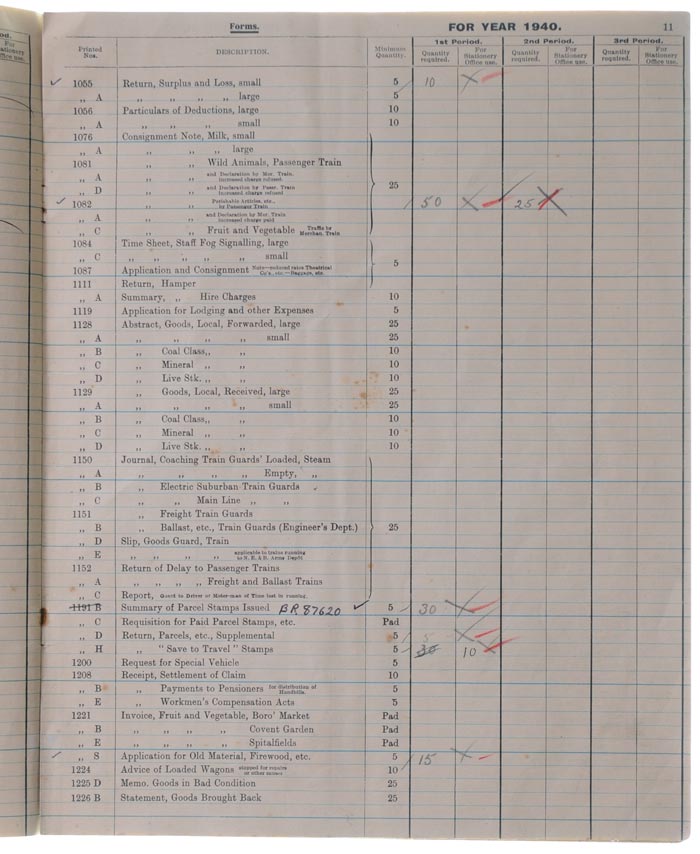 Forms. FOR YEAR 1940. 11
od. Printed Nos. DESCRIPTION. Minimum Quantity. 1st Period. 2nd Period. 3rd Period.
For Stationery Office use. Quantity required. For Stationery Office use. Quantity required. For Stationery Office use. Quantity required. For Stationery Office use.
✓ 1055 Return, Surplus and Loss, small 5 10 ×
„ A „ „ „ „ large 5
1056 Particulars of Deductions, large 10
„ A „ „ „ small 10
1076 Consignment Note, Milk, small
„ A „ „ „ large
1081 „ „ Wild Animals, Passenger Train
„ A „ „ and Declaration by Mer. Train. increased charge refused.
„ D „ „ and Declaration by Passr. Train increased charge refused 25
✓ 1082 „ „ Perishable Articles, etc., by Passenger Train 50 × 25 ×
„ A „ „ and Declaration by Mer. Train increased charge paid
„ C „ „ Fruit and Vegetable Traffic by Merchan. Train
1084 Time Sheet, Staff Fog Signalling, large
„ C „ „ „ „ „ small
1087 Application and Consignment Note—reduced rates Theatrical Co's., etc.—Baggage, etc. 5
1111 Return, Hamper
„ A Summary, „ Hire Charges 10
1119 Application for Lodging and other Expenses 5
1128 Abstract, Goods, Local, Forwarded, large 25
„ A „ „ „ „ small 25
„ B „ Coal Class„ „ 10
„ C „ Mineral „ „ 10
„ D „ Live Stk. „ „ 10
1129 „ Goods, Local, Received, large 25
„ A „ „ „ „ small 25
„ B „ Coal Class„ „ 10
„ C „ Mineral „ „ 10
„ D „ Live Stk. „ „ 10
1150 Journal, Coaching Train Guards' Loaded, Steam
„ A „ „ „ „ Empty, „
„ B „ Electric Suburban Train Guards
„ C „ „ Main Line „ „
1151 „ Freight Train Guards
„ B „ Ballast, etc., Train Guards (Engineer's Dept.) 25
„ D Slip, Goods Guard, Train
„ E „ „ „ „ applicable to trains running
1152 Return of Delay to Passenger Trains
„ A „ „ „ „ Freight and Ballast Trains
„ C Report, Guard to Driver or Motor-man of Time lost in running.
1191 B Summary of Parcel Stamps Issued BR 87620 ✓ 5 30 ×
„ C Requisition for Paid Parcel Stamps, etc. Pad
„ D Return, Parcels, etc., Supplemental 5 5 ×
„ H „ "Save to Travel" Stamps 5 30 10 ×
1200 Request for Special Vehicle 5
1208 Receipt, Settlement of Claim 10
„ B „ Payments to Pensioners for distribution of Handbills. 5
„ E „ Workmen's Compensation Acts 5
1221 Invoice, Fruit and Vegetable, Boro' Market Pad
„ B „ „ „ „ Covent Garden Pad
„ E „ „ „ „ Spitalfields Pad
✓ „ S Application for Old Material, Firewood, etc. 5 15 ×
1224 Advice of Loaded Wagons stopped for repairs or other causes 10
1225 D Memo. Goods in Bad Condition 25
1226 B Statement, Goods Brought Back 25